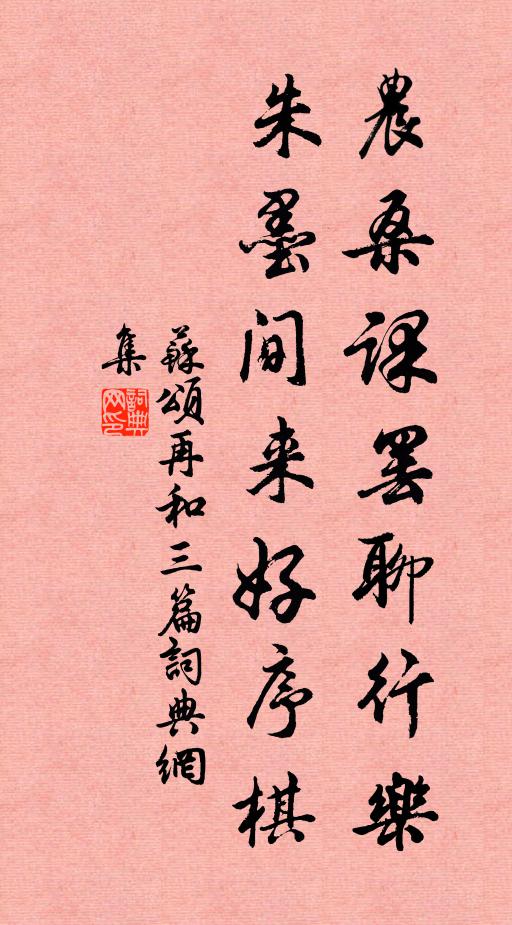 農桑課罷聊行樂
朱墨间来好序棋
蘇頌再和三篇詞典網
集
詞典
网印